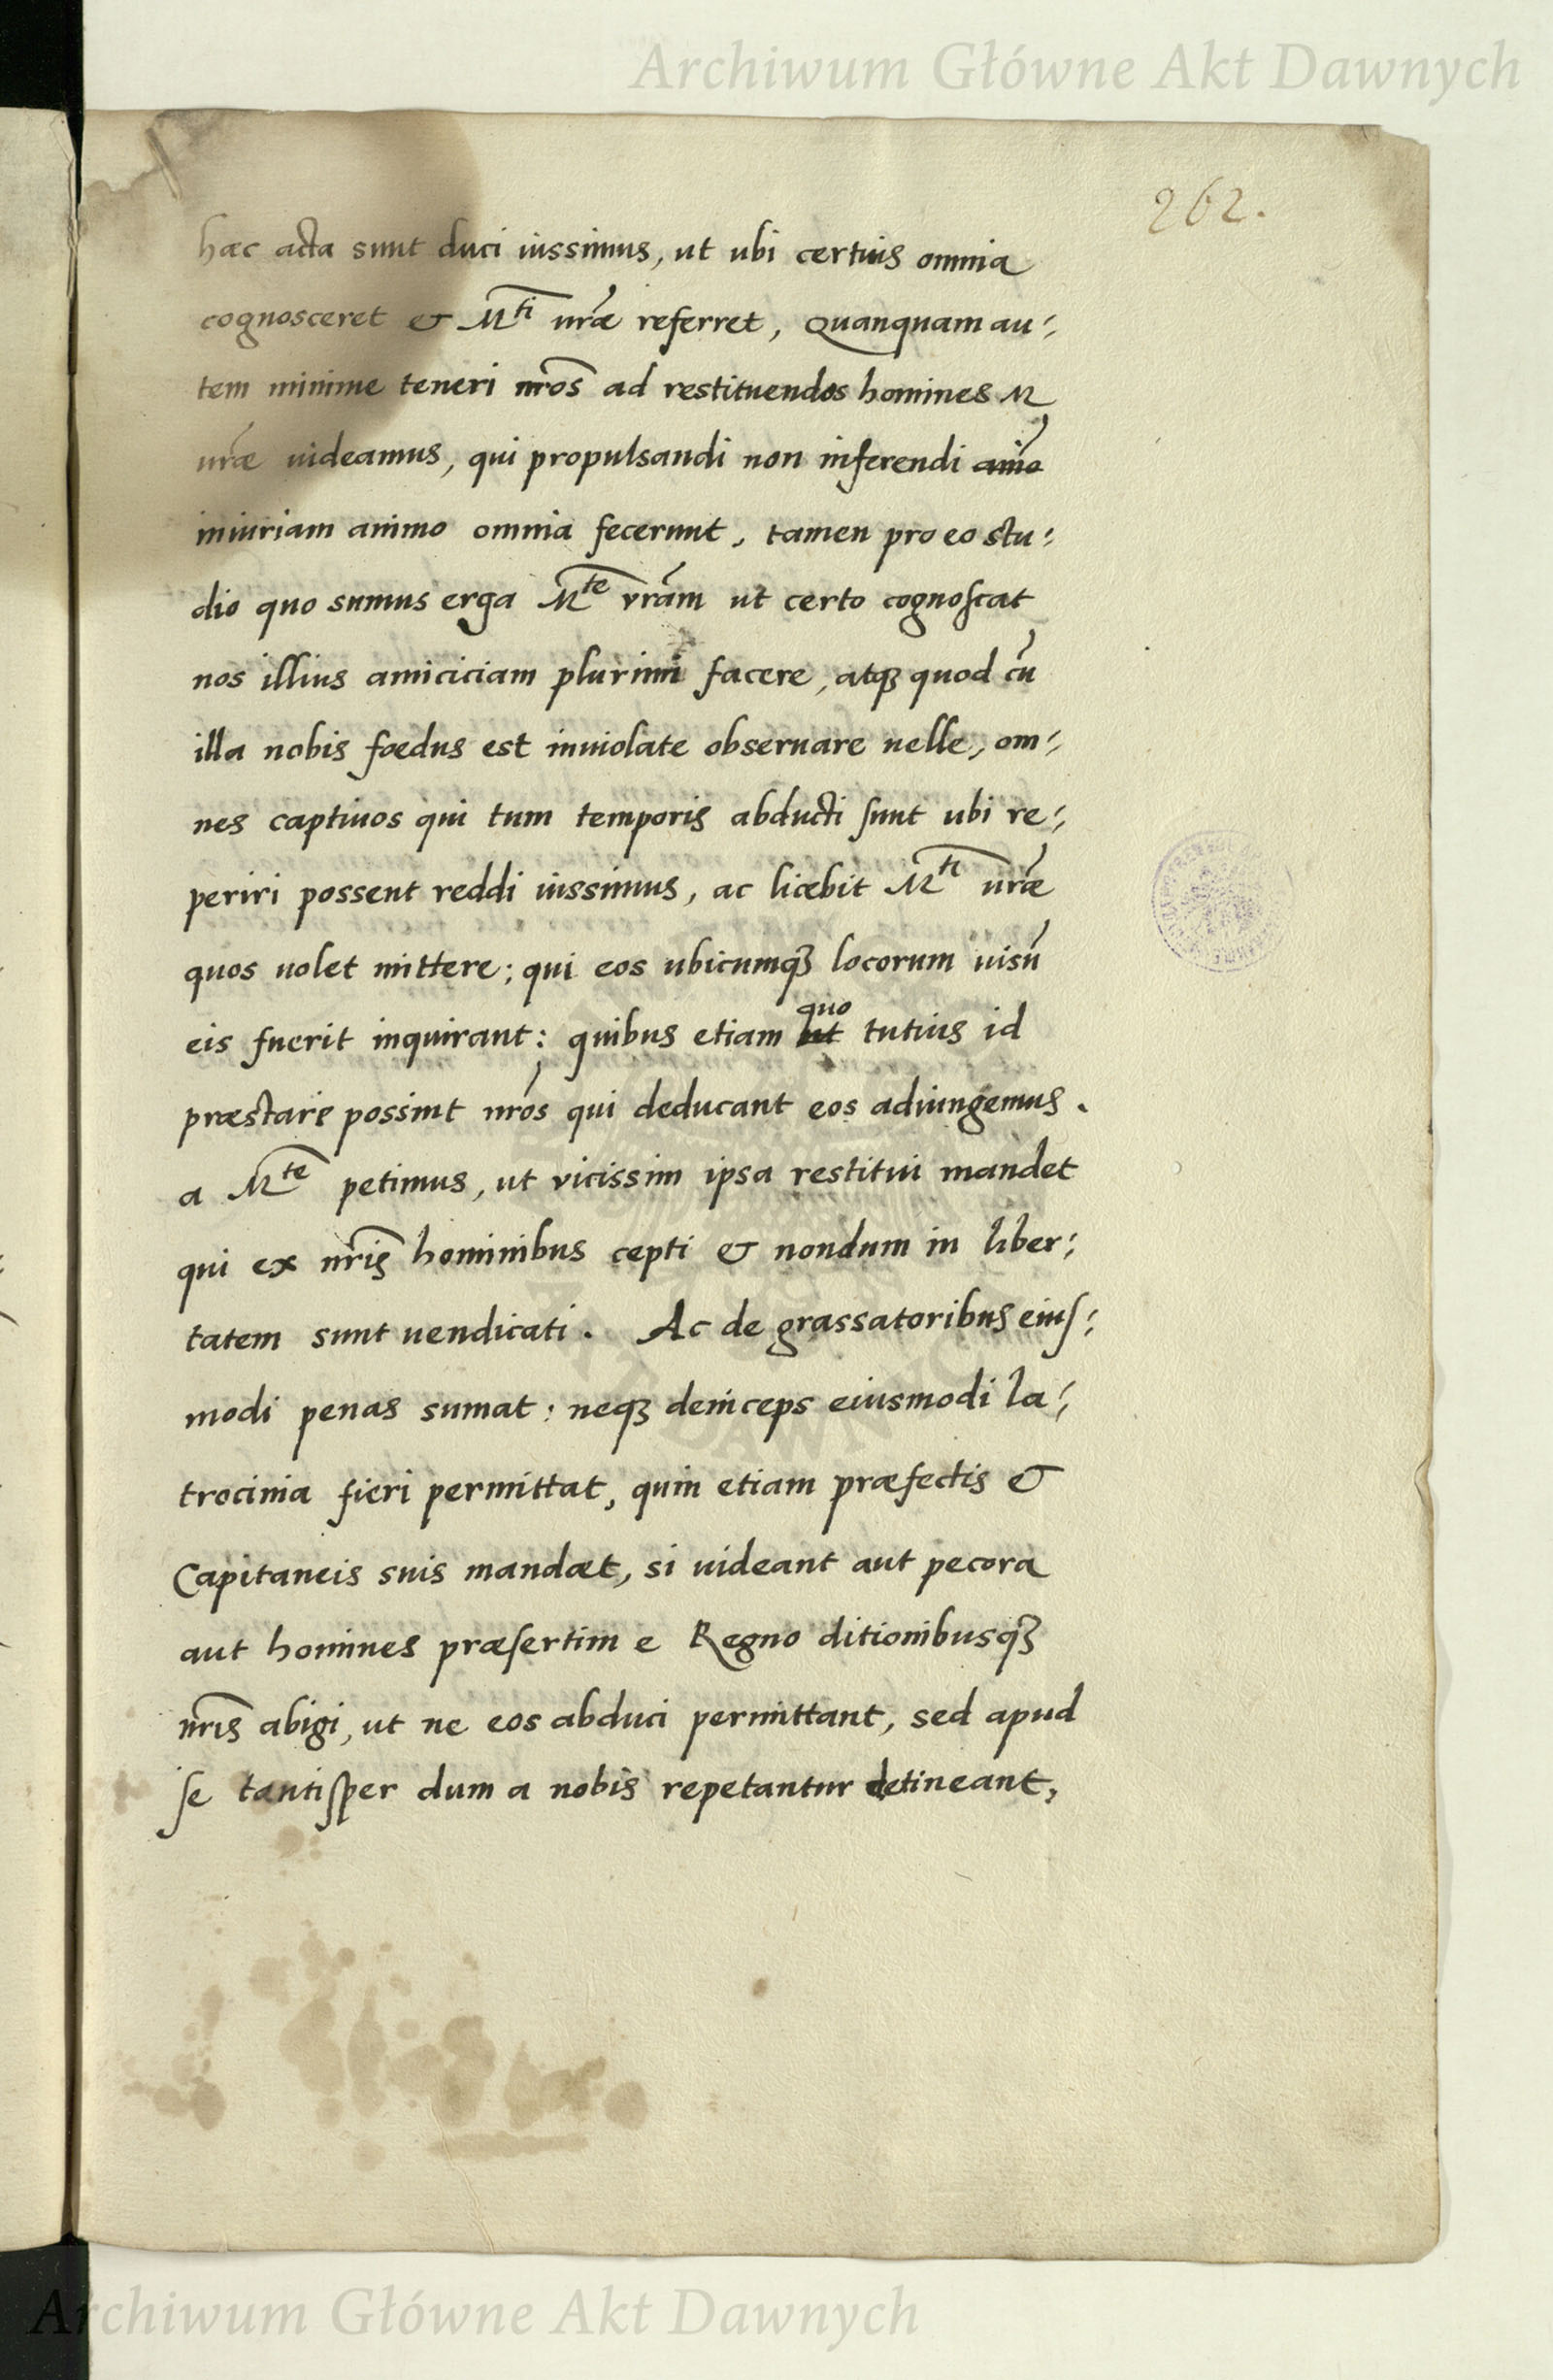 Archiwum Główne Akt Dawnych
262.
hæc acta sunt duci iussimus, ut ubi certius omnia
cognosceret & M^ti uræ referret, Quanquam au:
tem minime teneri nros ad restituendos homines M
uræ uideamus, qui propulsandi non inferendi aīo
iniuriam animo omnia fecerunt, tamen pro eo stu:
dio quo sumus erga M^te vram ut certo cognoscat
nos illius amiciciam plurimi facere, atqꝫ quod cū
illa nobis fœdus est inuiolate obseruare uelle, om:
nes captiuos qui tum temporis abducti sunt ubi re:
periri possent reddi iussimus, ac licebit M^ti uræ
quos uolet mittere; qui eos ubicumqꝫ locorum uisū
eis fuerit inquirant: quibus etiam ut quo tutius id
præstare possint nros qui deducant eos adiungemus.
a M^te petimus, ut vicissim ipsa restitui mandet
qui ex nris hominibus cepti & nondum in liber:
tatem sunt uendicati. Ac de grassatoribus eius:
modi penas sumat: neqꝫ deinceps eiusmodi la:
trocinia fieri permittat, quin etiam præfectis &
Capitaneis suis mandæt, si uideant aut pecora
aut homines præsertim e Regno ditionibusqꝫ
nris abigi, ut ne eos abduci permittant, sed apud
se tantisper dum a nobis repetantur detineant,
Archiwum Główne Akt Dawnych